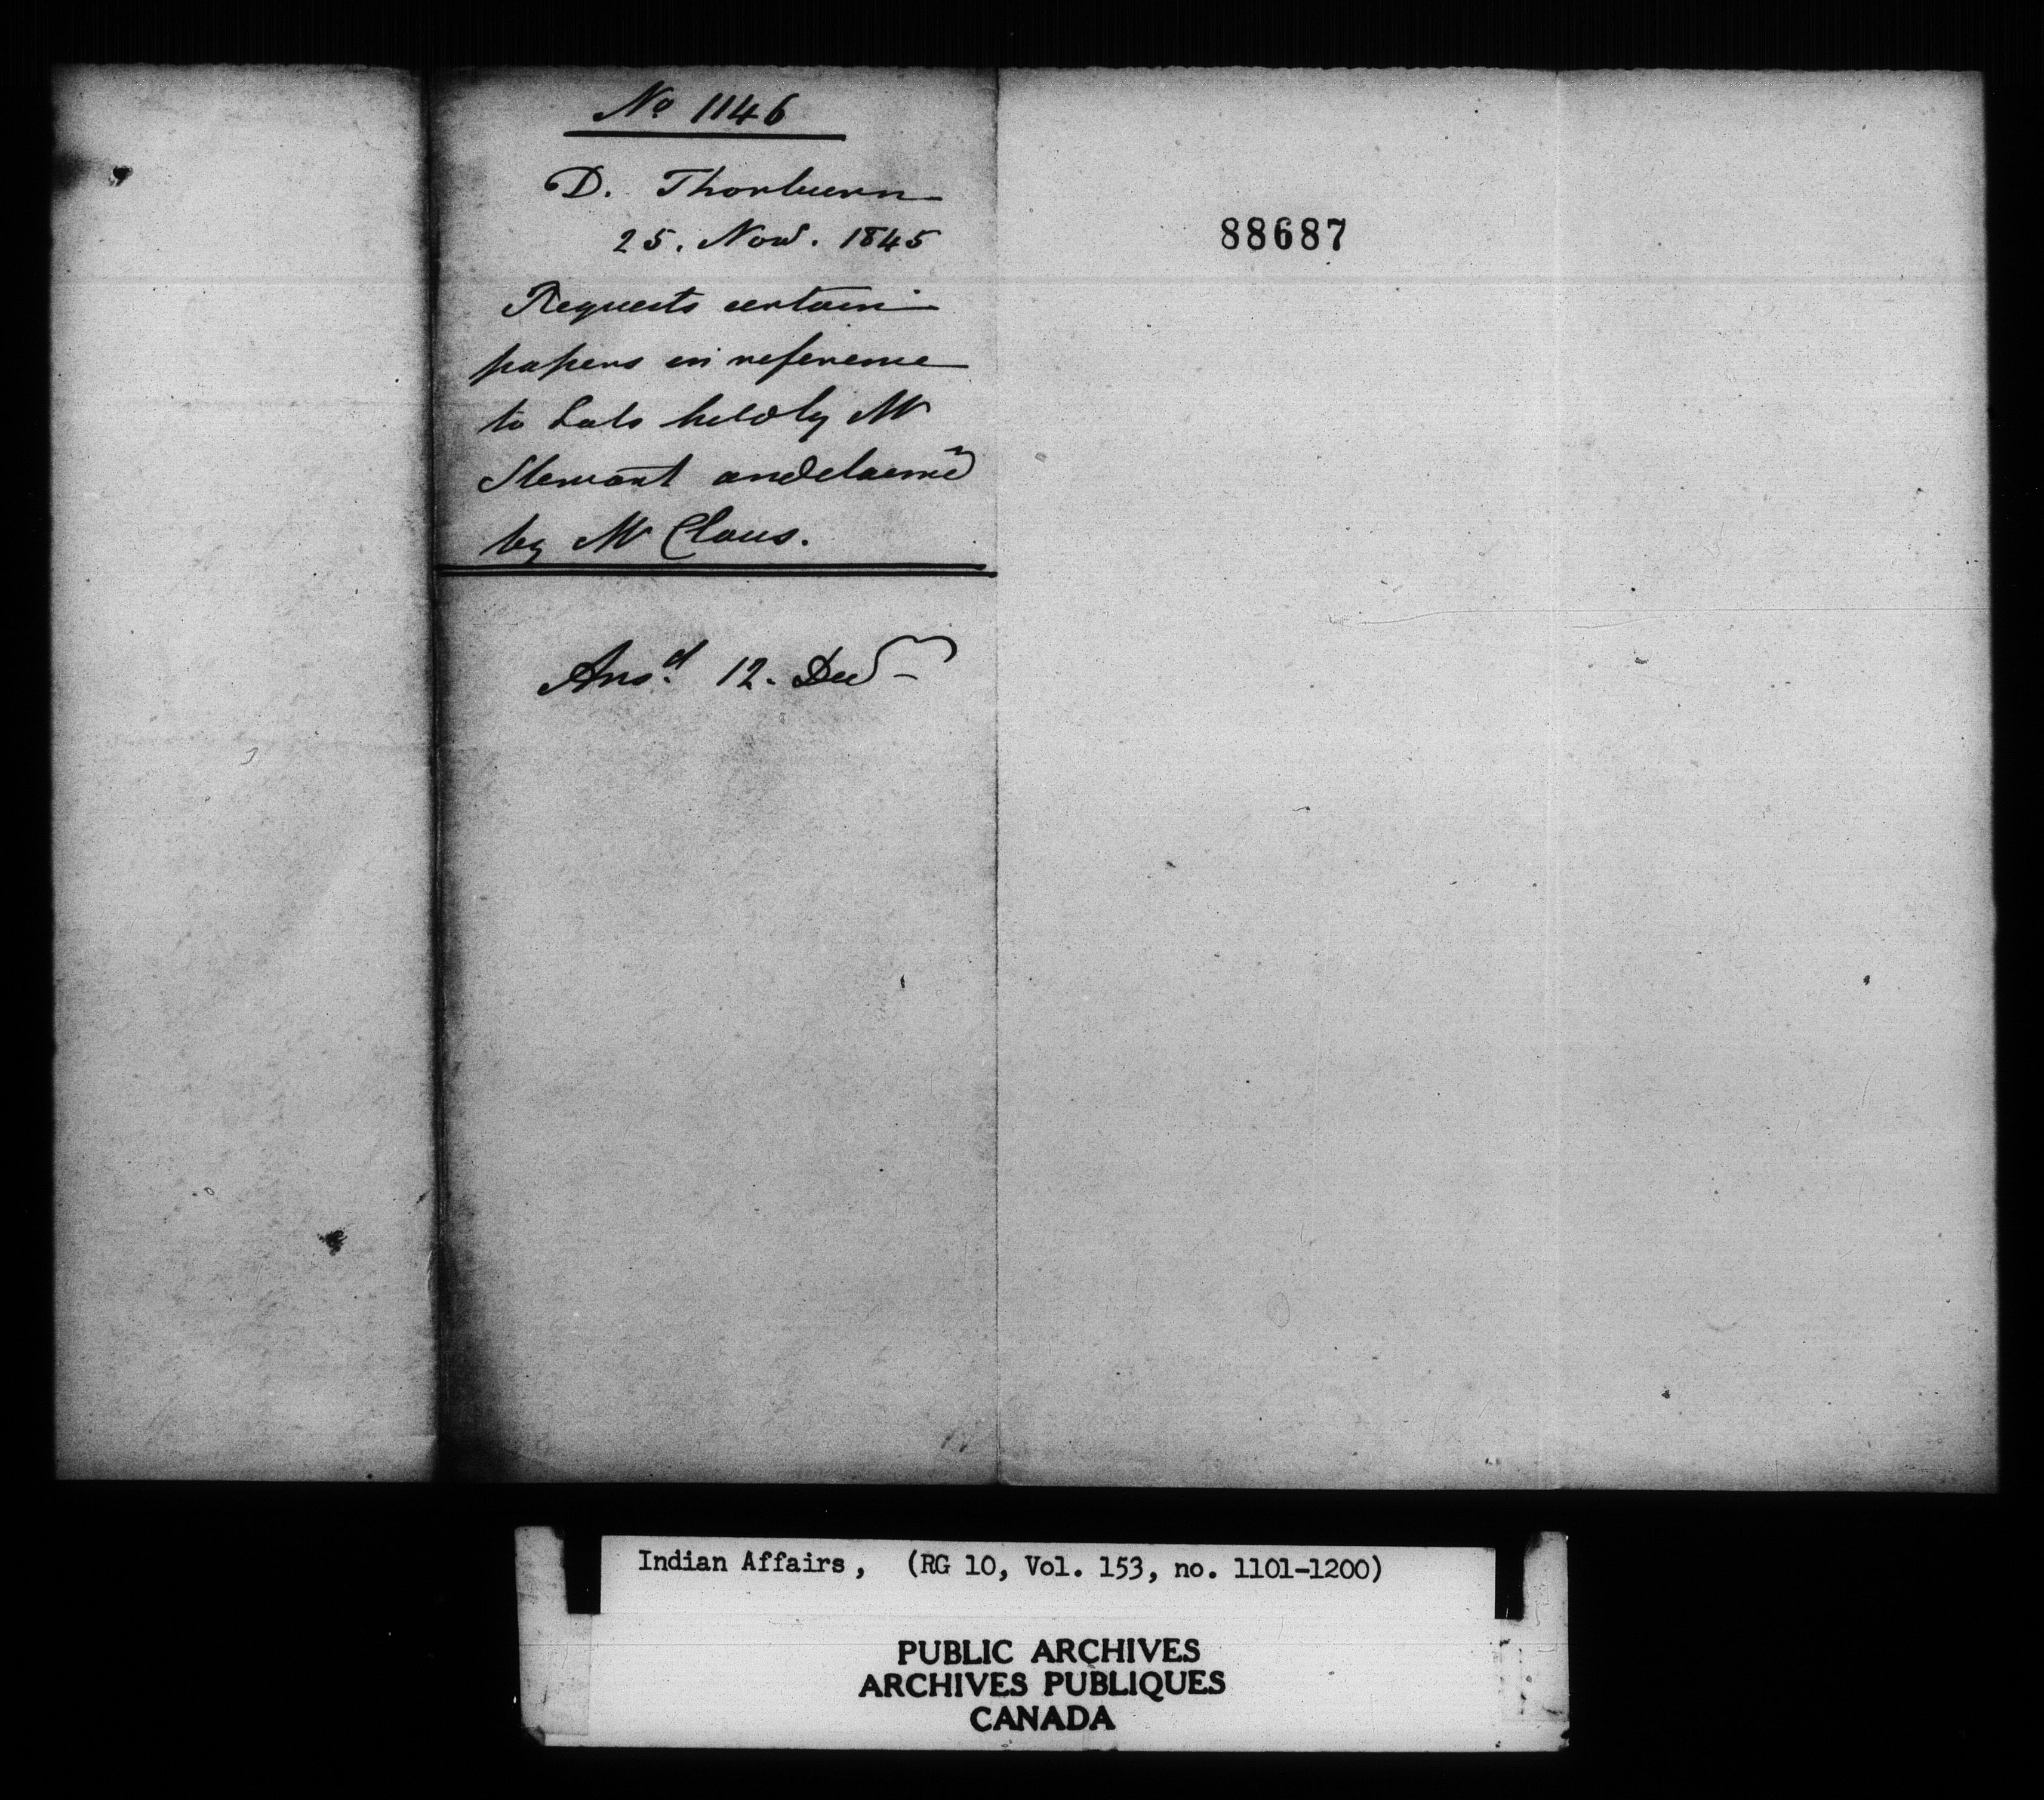 No 1146
D. Thorburn
25. Novr. 1845
Requests certain
papers in reference
to Lots held by Mr
Stewart and claimed
by Mr Claus.
Ansd. 12. Decr
88687
Indian Affairs, (RG 10, Vol. 153, no. 1101-1200)
PUBLIC ARCHIVES
ARCHIVES PUBLIQUES
CANADA